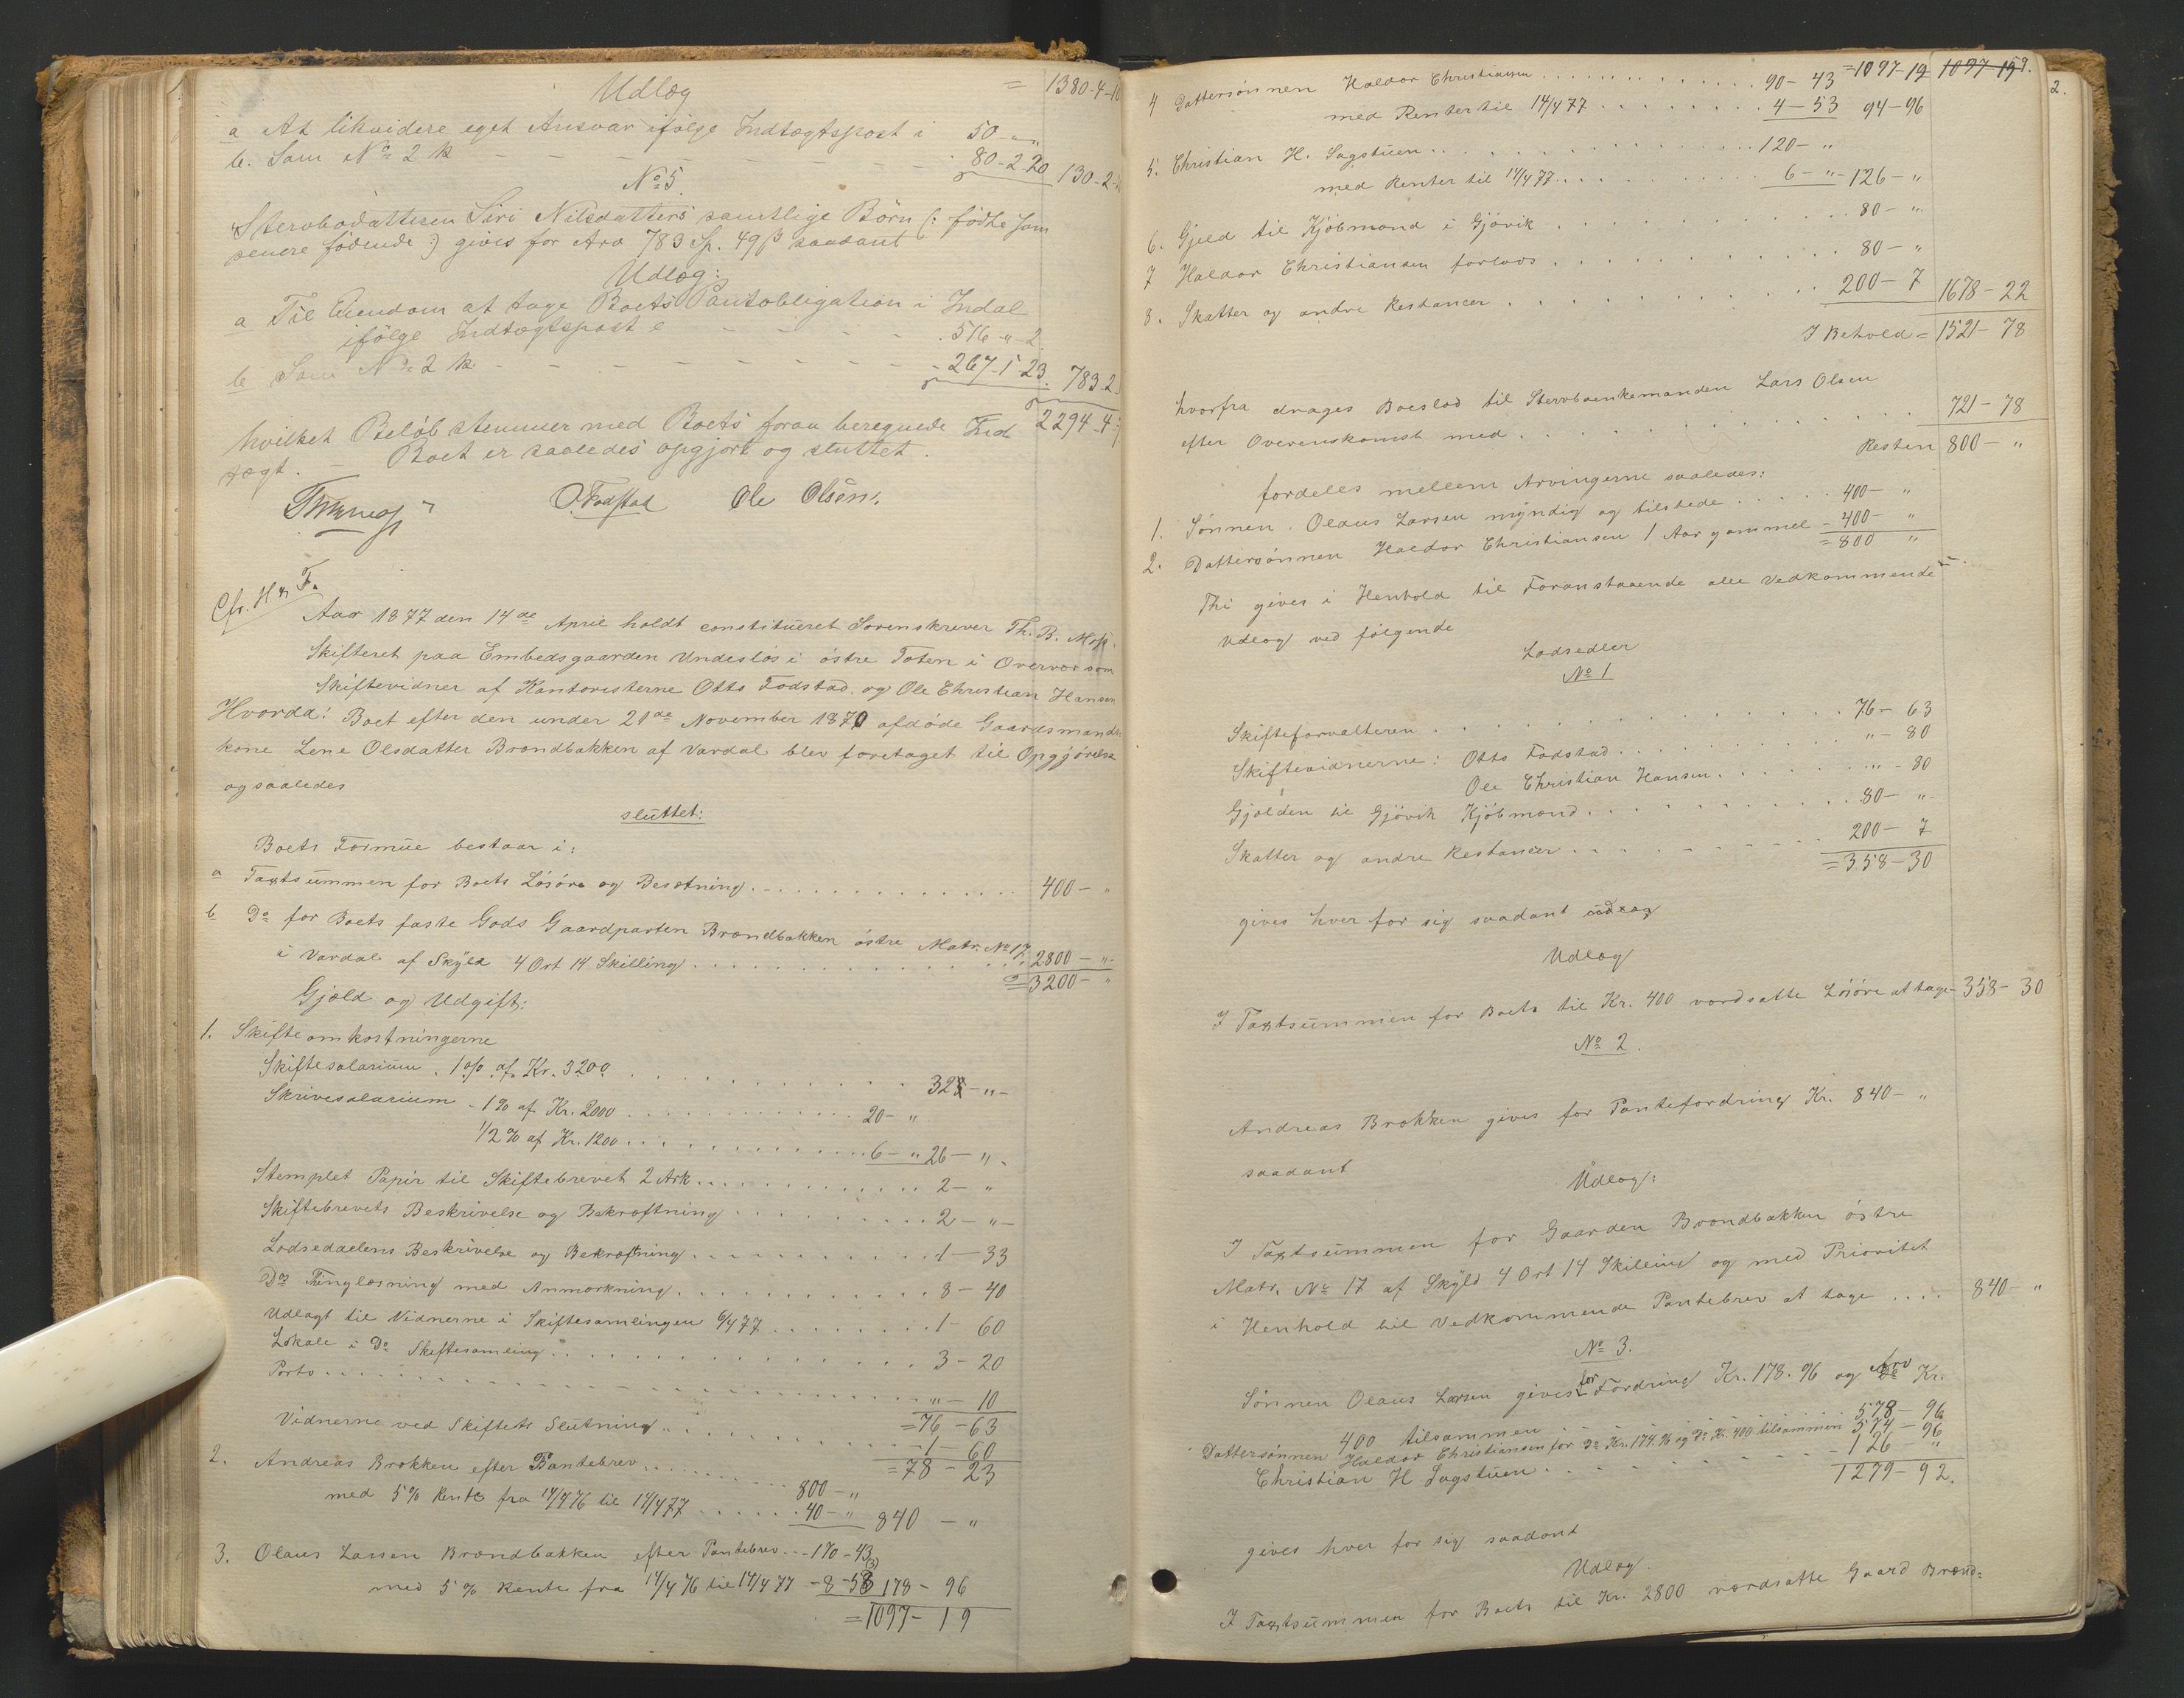 Udlæg = 1380-4-10
a At likvidere eget Ansvar ifølge Indtægtspost i 50-"-"
b. Som No 2 k - - - 80-2-20 130-2-
No 5.
Stervbodatteren Siri Nilsdatters samtlige Børn (: fødte som
senere fødende :) gives for Arv 783 Sp. 49 β saadant
Udlæg:
a Til Eiendom at tage Boets Pantobligation i Indal
ifølge Indtægtspost e - - - 516-"-2
b Som No 2 k - - - 267-1-23. 783-2
2294-4-
hvilket Beløb stemmer med Boets foran beregnede Ind
tægt. - Boet er saaledes opgjort og sluttet.
O. Fodstad Ole Olsen.
Cfr. H & F.
Aar 1877 den 14de April holdt constitueret Sorenskriver Th. B. Moss.
Skifteret paa Embedsgaarden Undeslös i östre Toten i Overvær som
Skiftevidner af Kontoristerne Otto Fodstad og Ole Christian Hansen
Hvorda: Boet efter den under 21de November 1870 afdöde Gaardmands
kone Lene Olsdatter Brændbakken af Vardal blev foretaget til Opgjörelse
og saaledes
sluttet:
Boets Formue bestaar i:
a Taxtsummen for Boets Lösöre og Besætning . . . 400- "
b Do for Boets faste Gods Gaardparten Brændbakken östre Matr. No 17
i Vardal af Skyld 4 Ort 14 Skilling . . . 2800- "-
= 3200- "
Gjæld og Udgift:
1. Skifteomkostningerne
Skiftesalarium . 1% af Kr. 3200 . . . 32-"-
Skrivesalarium - 1% af Kr. 2000 . . . 20- "
1/2 % af Kr. 1200 . . . 6- " 26- ".
Stemplet Papir til Skiftebrevet 2 Ark . . . 2- "
Skiftebrevets Beskrivelse og Bekræftning . . . 2- "-
Lodseddelens Beskrivelse og Bekræftning . . . 1- 33
Do Thinglæsning med Anmærkning . . . 8- 40
Udlagt til Vidnerne i Skiftesamlingen 6/4 77 . . . 1- 60
Lokale i Do Skiftesamling . . . 3- 20
Porto . . . "- 10
= 76- 63
Vidnerne ved Skiftets Slutning . . . 1- 60
= 78- 23
2. Andreas Brokken efter Pantebrev . . . 800- "
med 5% Rente fra 14/4 76 til 14/4 77 . . . 40- " 840 - "
3. Olaus Larsen Brændbakken efter Pantebrev . . 170-43
med 5% Rente fra 14/4 76 til 14/4 77 - 8-53 178- 96
= 1097- 19
4 Dattersönnen Haldor Christiansen . . . 90- 43 =1097-19 1097-19.
med Renter til 14/4 77 . . . 4- 53 94-96
5. Christian H. Sagstuen . . . 120- "
med Renter til 14/4 77 . . . 6- "- 126- "
6. Gjæld til Kjöbmænd i Gjövik . . . 80- "
7 Haldor Christiansen forlods . . . 80- "
8. Skatter og andre Restancer . . . 200- 7 1678-22
I Behold = 1521- 78
hvorfra drages Boeslod til Stervboenkemanden Lars Olsen
efter Overenskomst med . . . 721-78
Resten 800- "
fordeles mellem Arvingerne saaledes:
1. Sönnen Olaus Larsen myndig og tilstede . . . 400- "
2. Dattersönnen Haldor Christiansen 1 Aar gammel = 400- "
= 800 "
Thi gives i Henhold til Foranstaaende alle Vedkommende
Udlæg ved følgende
Lodsedler
No 1
Skifteforvalteren . . . 76- 63
Skiftevidnerne: Otto Fodstad . . . "- 80
Ole Christian Hansen . . . "- 80
Gjælden til Gjövik Kjöbmænd . . . 80- "-
Skatter og andre Restancer . . . 200- 7
= 358-30
gives hver for sig saadant Udlæg
Udlæg
I Taxtsummen for Boets til Kr. 400 værdsatte Lösöre at tage - 358- 30
No 2.
Andreas Brokken gives for Pantefordring Kr. 840- "
saadant
Udlæg:
I Taxtsummen for Gaarden Brændbakken östre
Matr. No 17 af Skyld 4 Ort 14 Skilling og med Prioritet
i Henhold til Vedkommende Pantebrev at tage . . . . 840- "
No 3.
Sönnen Olaus Larsen gives for Fordring Kr. 178. 96 og Arv Kr.
400 tilsammen 578- 96
Dattersönnen Haldor Christiansen for Do Kr. 174.96 og Do Kr. 400 tilsammen 574- 96
Christian H Sagstuen . . . 126- "
1279- 92.
gives hver for sig saadant
Udlæg.
I Taxtsummen for Boets til Kr. 2800 værdsatte Gaard Brænd=
2.